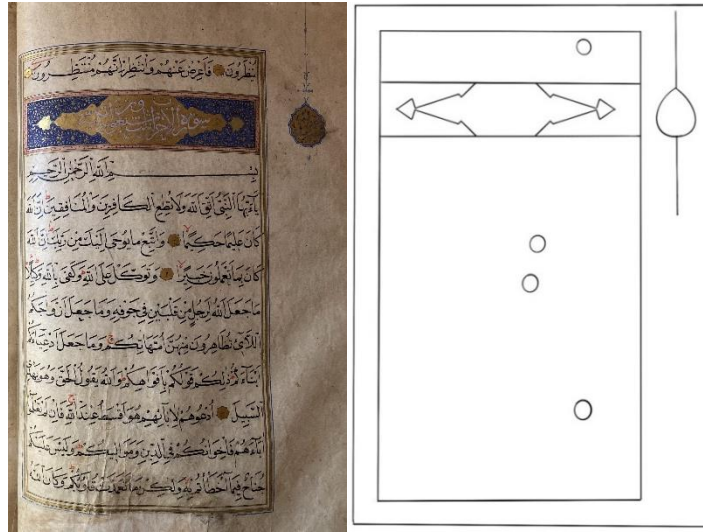 يُنْظَرُونَ فَأَعْرِضْ عَنْهُمْ وَانْتَظِرْ إِنَّهُمْ مُنْتَظِرُونَ
سورة الاحزاب
بِسْمِ اللَّهِ الرَّحْمَٰنِ الرَّحِيمِ
يَا أَيُّهَا النَّبِيُّ اتَّقِ اللَّهَ وَلَا تُطِعِ الْكَافِرِينَ وَالْمُنَافِقِينَ إِنَّ اللَّهَ
كَانَ عَلِيمًا حَكِيمًا وَاتَّبِعْ مَا يُوحَىٰ إِلَيْكَ مِنْ رَبِّكَ إِنَّ اللَّهَ
كَانَ بِمَا تَعْمَلُونَ خَبِيرًا وَتَوَكَّلْ عَلَى اللَّهِ وَكَفَىٰ بِاللَّهِ وَكِيلًا
مَا جَعَلَ اللَّهُ لِرَجُلٍ مِنْ قَلْبَيْنِ فِي جَوْفِهِ وَمَا جَعَلَ أَزْوَاجَكُمُ
اللَّائِي تُظَاهِرُونَ مِنْهُنَّ أُمَّهَاتِكُمْ وَمَا جَعَلَ أَدْعِيَاءَكُمْ
أَبْنَاءَكُمْ ذَٰلِكُمْ قَوْلُكُمْ بِأَفْوَاهِكُمْ وَاللَّهُ يَقُولُ الْحَقَّ وَهُوَ يَهْدِي
السَّبِيلَ ادْعُوهُمْ لِآبَائِهِمْ هُوَ أَقْسَطُ عِنْدَ اللَّهِ فَإِنْ لَمْ تَعْلَمُوا
آبَاءَهُمْ فَإِخْوَانُكُمْ فِي الدِّينِ وَمَوَالِيكُمْ وَلَيْسَ عَلَيْكُمْ
جُنَاحٌ فِيمَا أَخْطَأْتُمْ بِهِ وَلَٰكِنْ مَا تَعَمَّدَتْ قُلُوبُكُمْ وَكَانَ اللَّهُ